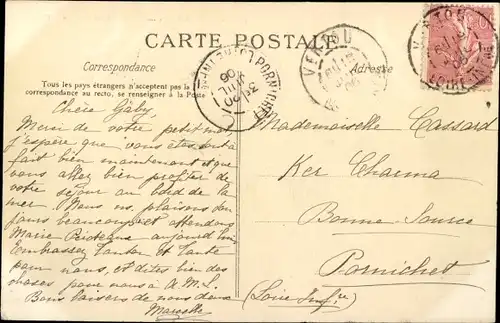 CARTE POSTALE
Correspondance
Adresse
Tous les pays étrangers n'acceptent pas la
correspondance au recto, se renseigner à la Poste
VERTOU
VERTOU
LOIRE INF
PORNICHET
LOIRE INF
Chère Gaby
Merci de votre petit mot,
j'espère que vous êtes tout à
fait bien maintenant et que
vous allez bien profiter de
votre séjour au bord de la
mer. Nous ns. plaisons
jours beaucoup et attendons
Marie aujourd'hui
Embrassez Tonton et Tante
pour nous, et dites bien des
choses pour nous à
Bons baisers de nous deux
Marcelle
Mademoiselle Cassard
Ker Charma
Bonne-Source
Pornichet
(Loire Infre)